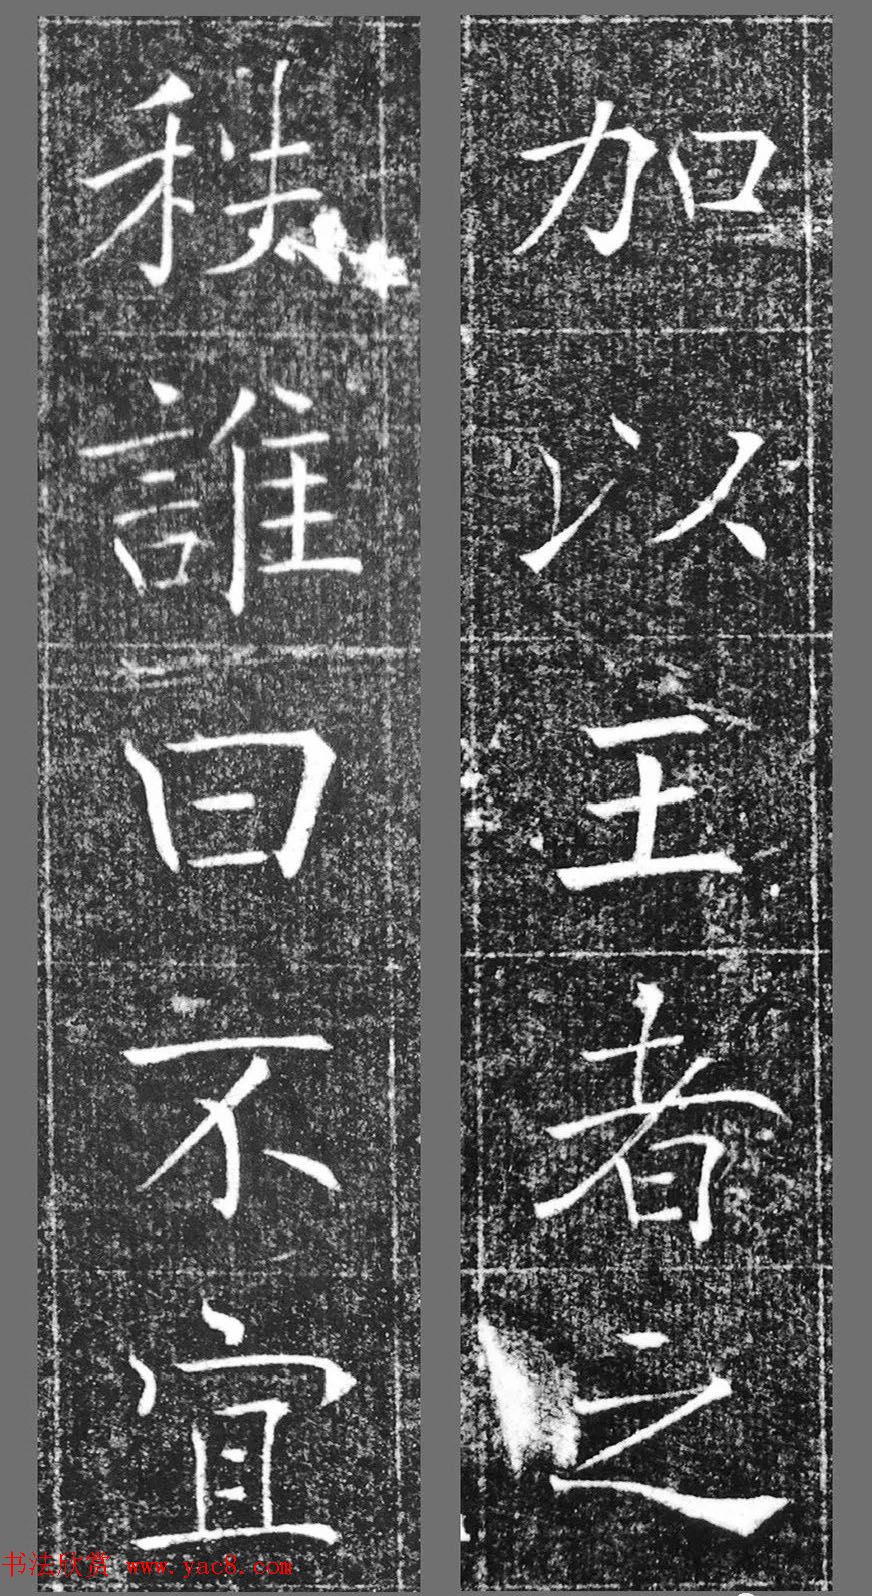 加以王者之
秩誰曰不宜
书法欣赏 www.yac8.com